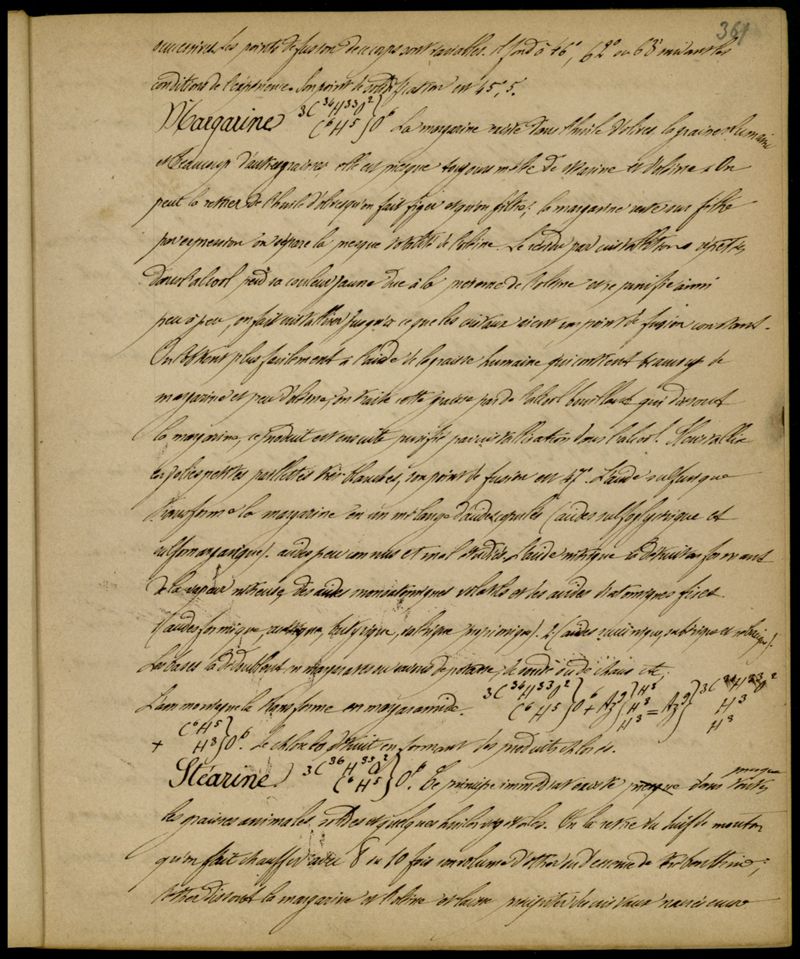 361
successives. Les points de fusion de ce corps sont variables. il fond à 46°, 62° ou 68° suivant les
conditions de l'expérience. Son point de solidification est 45°,5.
Margarine 3C³⁶H³³O² } C⁶H⁵ } O⁶ La margarine existe dans l'huile d'olives la graisse humaine
et beaucoup d'autres graisses elle est presque toujours mêlée de stéarine et d'oléine. On
peut la retirer de l'huile d'olives qu'on fait figer et qu'on filtre; la margarine reste sur filtre
par expression on sépare la presque totalité de l'oléine. Le résidu par cristallisations répétées
dans l'alcool perd sa couleur jaune due à la présence de l'oléine et se purifie ainsi
peu à peu, on fait cristalliser jusqu'à ce que les cristaux aient un point de fusion constant.
On l'obtient plus facilement à l'aide de la graisse humaine qui contient beaucoup de
margarine et peu d'oléine; on traite cette graisse par de l'alcool bouillant qui dissout
la margarine, ce produit est ensuite purifié par cristallisation dans l'alcool. Il cristallise
en petites paillettes très blanches, son point de fusion est 47°. L'acide sulfurique
transforme la margarine en un mélange d'acides copulés (acides sulfoglycérique et
sulfomargarique). acides peu connus et mal étudiés. L'acide nitrique la détruit en formant
de la vapeur nitreuse, des acides monoatomiques volatils et des acides diatomiques fixes
(acides formique, acétique, butyrique, valérique, caproïque). 2 (acides succinique, subérique et
Les bases la dédoublent en margarates ou savons de potasse, de soude ou de chaux etc.
L'ammoniaque la transforme en margaramide. 3C³⁶H³³O² } C⁶H⁵ } O⁶ + Az³ { H³ H³ H³ = Az³ } 3C³⁶H³³O² H³ H³
+ C⁶H⁵ } H³ } O⁶. Le chlore la détruit en formant des produits chlorés.
Stéarine. 3C³⁶H³³O² } C⁶H⁵ } O⁶. Ce principe immédiat existe dans presque toutes
les graisses animales solides et quelques huiles végétales. On la retire du suif de mouton
qu'on fait chauffer avec 8 ou 10 fois son volume d'éther ou d'essence de térébenthine;
l'éther dissout la margarine et l'oléine et laisse précipiter des cristaux nacrés encore